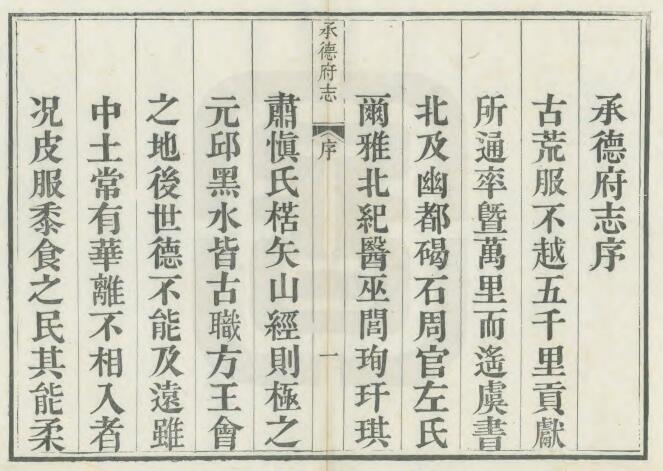 承德府志序
古荒服不越五千里貢獻
所通率曁萬里而遙虞書
北及幽都碣石周官左氏
爾雅北紀醫巫閭珣玗琪
承德府志
序
一
肅愼氏楛矢山經則極之
元邱黑水皆古職方王會
之地後世德不能及遠雖
中土常有華離不相入者
况皮服黍食之民其能柔